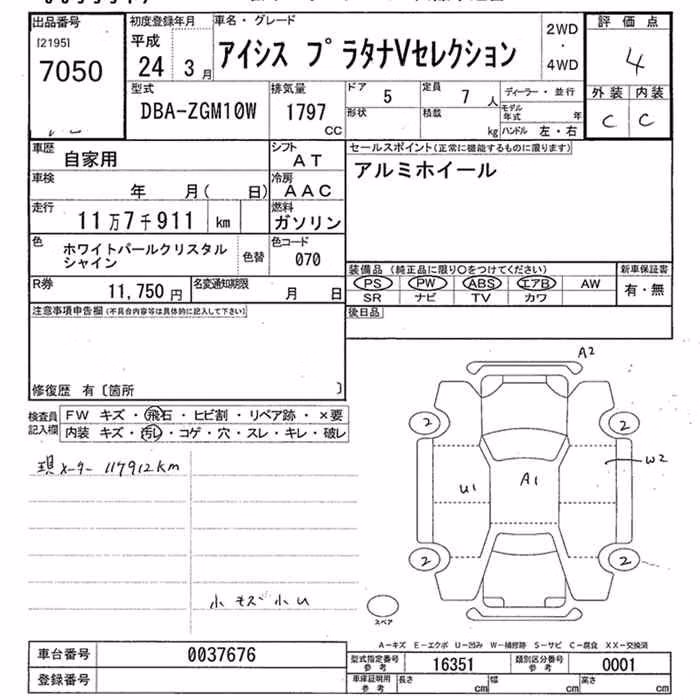 出品番号 初度登録年月 車名・グレード 2WD・4WD 評価点
[2195]
7050 平成 24 3月 アイシス プラタナVセレクション 4
型式 排気量 ドア 5 定員 7人 ディーラー・並行 外装 内装
DBA-ZGM10W 1797CC 形状 積載 kg モデル年式 年 ハンドル 左・右 C C
車歴 自家用 シフト AT セールスポイント(正常に機能するものに限ります)
車検 年 月( 日) 冷房 AAC アルミホイール
走行 11万7千911 km 燃料 ガソリン
色 ホワイトパールクリスタルシャイン 色替 色コード 070
装備品(純正品に限り○をつけてください) 新車保証書
R券 11,750円 名変通知期限 月 日 PS PW ABS エアB AW 有・無
SR ナビ TV カワ
注意事項申告欄(不具合内容等は具体的に記入して下さい) 後日品
修復歴 有〔箇所 〕
検査員記入欄 FW キズ・飛石・ヒビ割・リペア跡・×要
内装 キズ・汚レ・コゲ・穴・スレ・キレ・破レ
現メーター 117912km
小キズ小U
A2
2 2
W2
U1 A1
2 2
スペア
A-キズ E-エクボ U-凹み W-補修跡 S-サビ C-腐食 XX-交換済
車台番号 0037676 型式指定番号 参考 16351 類別区分番号 参考 0001
登録番号 車庫証明用 参考 長さ cm 幅 cm 高さ cm